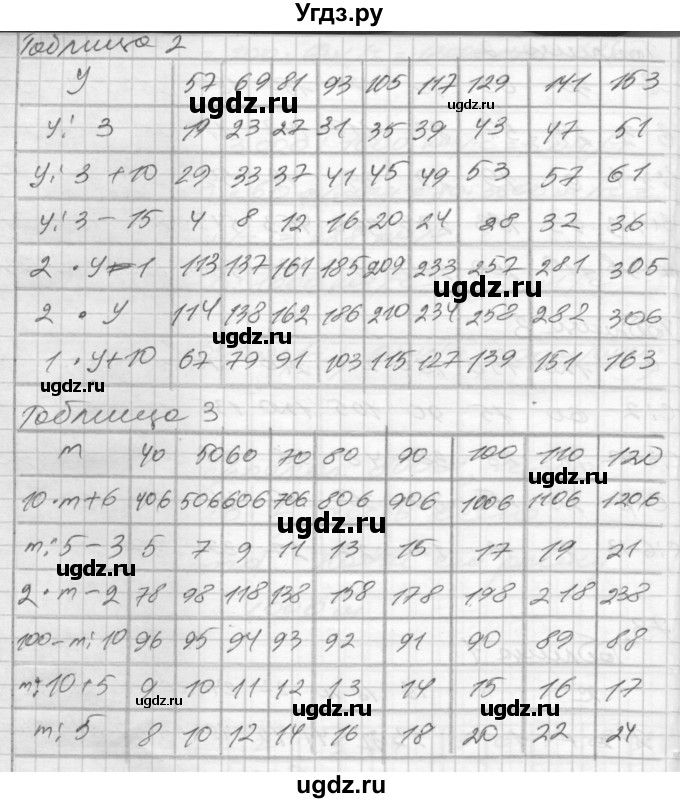 Угдз.ру
Таблица 2
y 57 69 81 93 105 117 129 141 153
y : 3 19 23 27 31 35 39 43 47 51
y : 3 + 10 29 33 37 41 45 49 53 57 61
y : 3 - 15 4 8 12 16 20 24 28 32 36
2 · y - 1 113 137 161 185 209 233 257 281 305
2 · y 114 138 162 186 210 234 258 282 306
1 · y + 10 67 79 91 103 115 127 139 151 163
Таблица 3
m 40 50 60 70 80 90 100 110 120
10 · m + 6 406 506 606 706 806 906 1006 1106 1206
m : 5 - 3 5 7 9 11 13 15 17 19 21
2 · m - 2 78 98 118 138 158 178 198 218 238
100 - m : 10 96 95 94 93 92 91 90 89 88
m : 10 + 5 9 10 11 12 13 14 15 16 17
m : 5 8 10 12 14 16 18 20 22 24
ugdz.ru
ugdz.ru
ugdz.ru
ugdz.ru
ugdz.ru
ugdz.ru
ugdz.ru
ugdz.ru
ugdz.ru
ugdz.ru
ugdz.ru
ugdz.ru
ugdz.ru
ugdz.ru